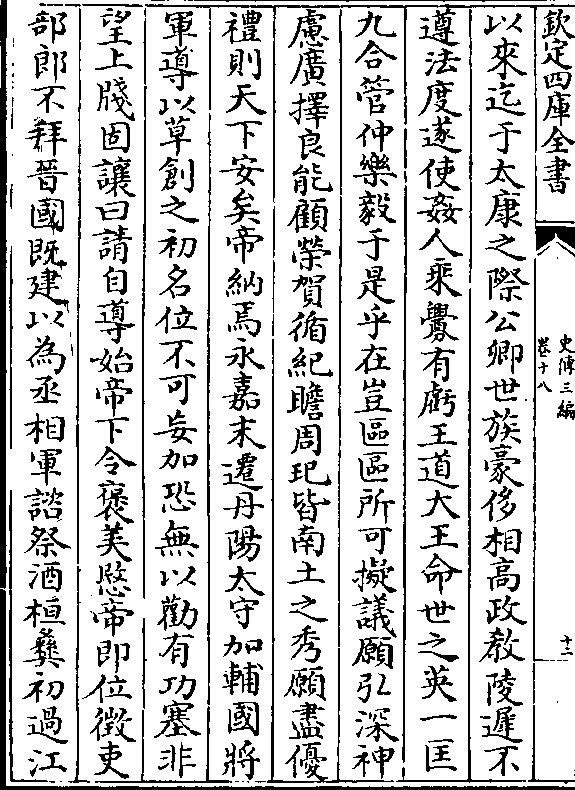 欽定四庫全書
史傳三編
卷十八
十三
以來迄于太康之際公卿世族豪侈相高政教陵遲不
遵法度遂使姦人乘釁有虧王道大王命世之英一匡
九合管仲樂毅于是乎在豈區區所可擬議願弘深神
慮廣擇良能顧榮賀循紀瞻周玘皆南土之秀願盡優
禮則天下安矣帝納焉永嘉末遷丹陽太守加輔國將
軍導以草創之初名位不可妄加恐無以勸有功塞非
望上牋固讓曰請自導始帝下令褒美愍帝即位徵吏
部郎不拜晉國既建以為丞相軍諮祭酒桓彝初過江